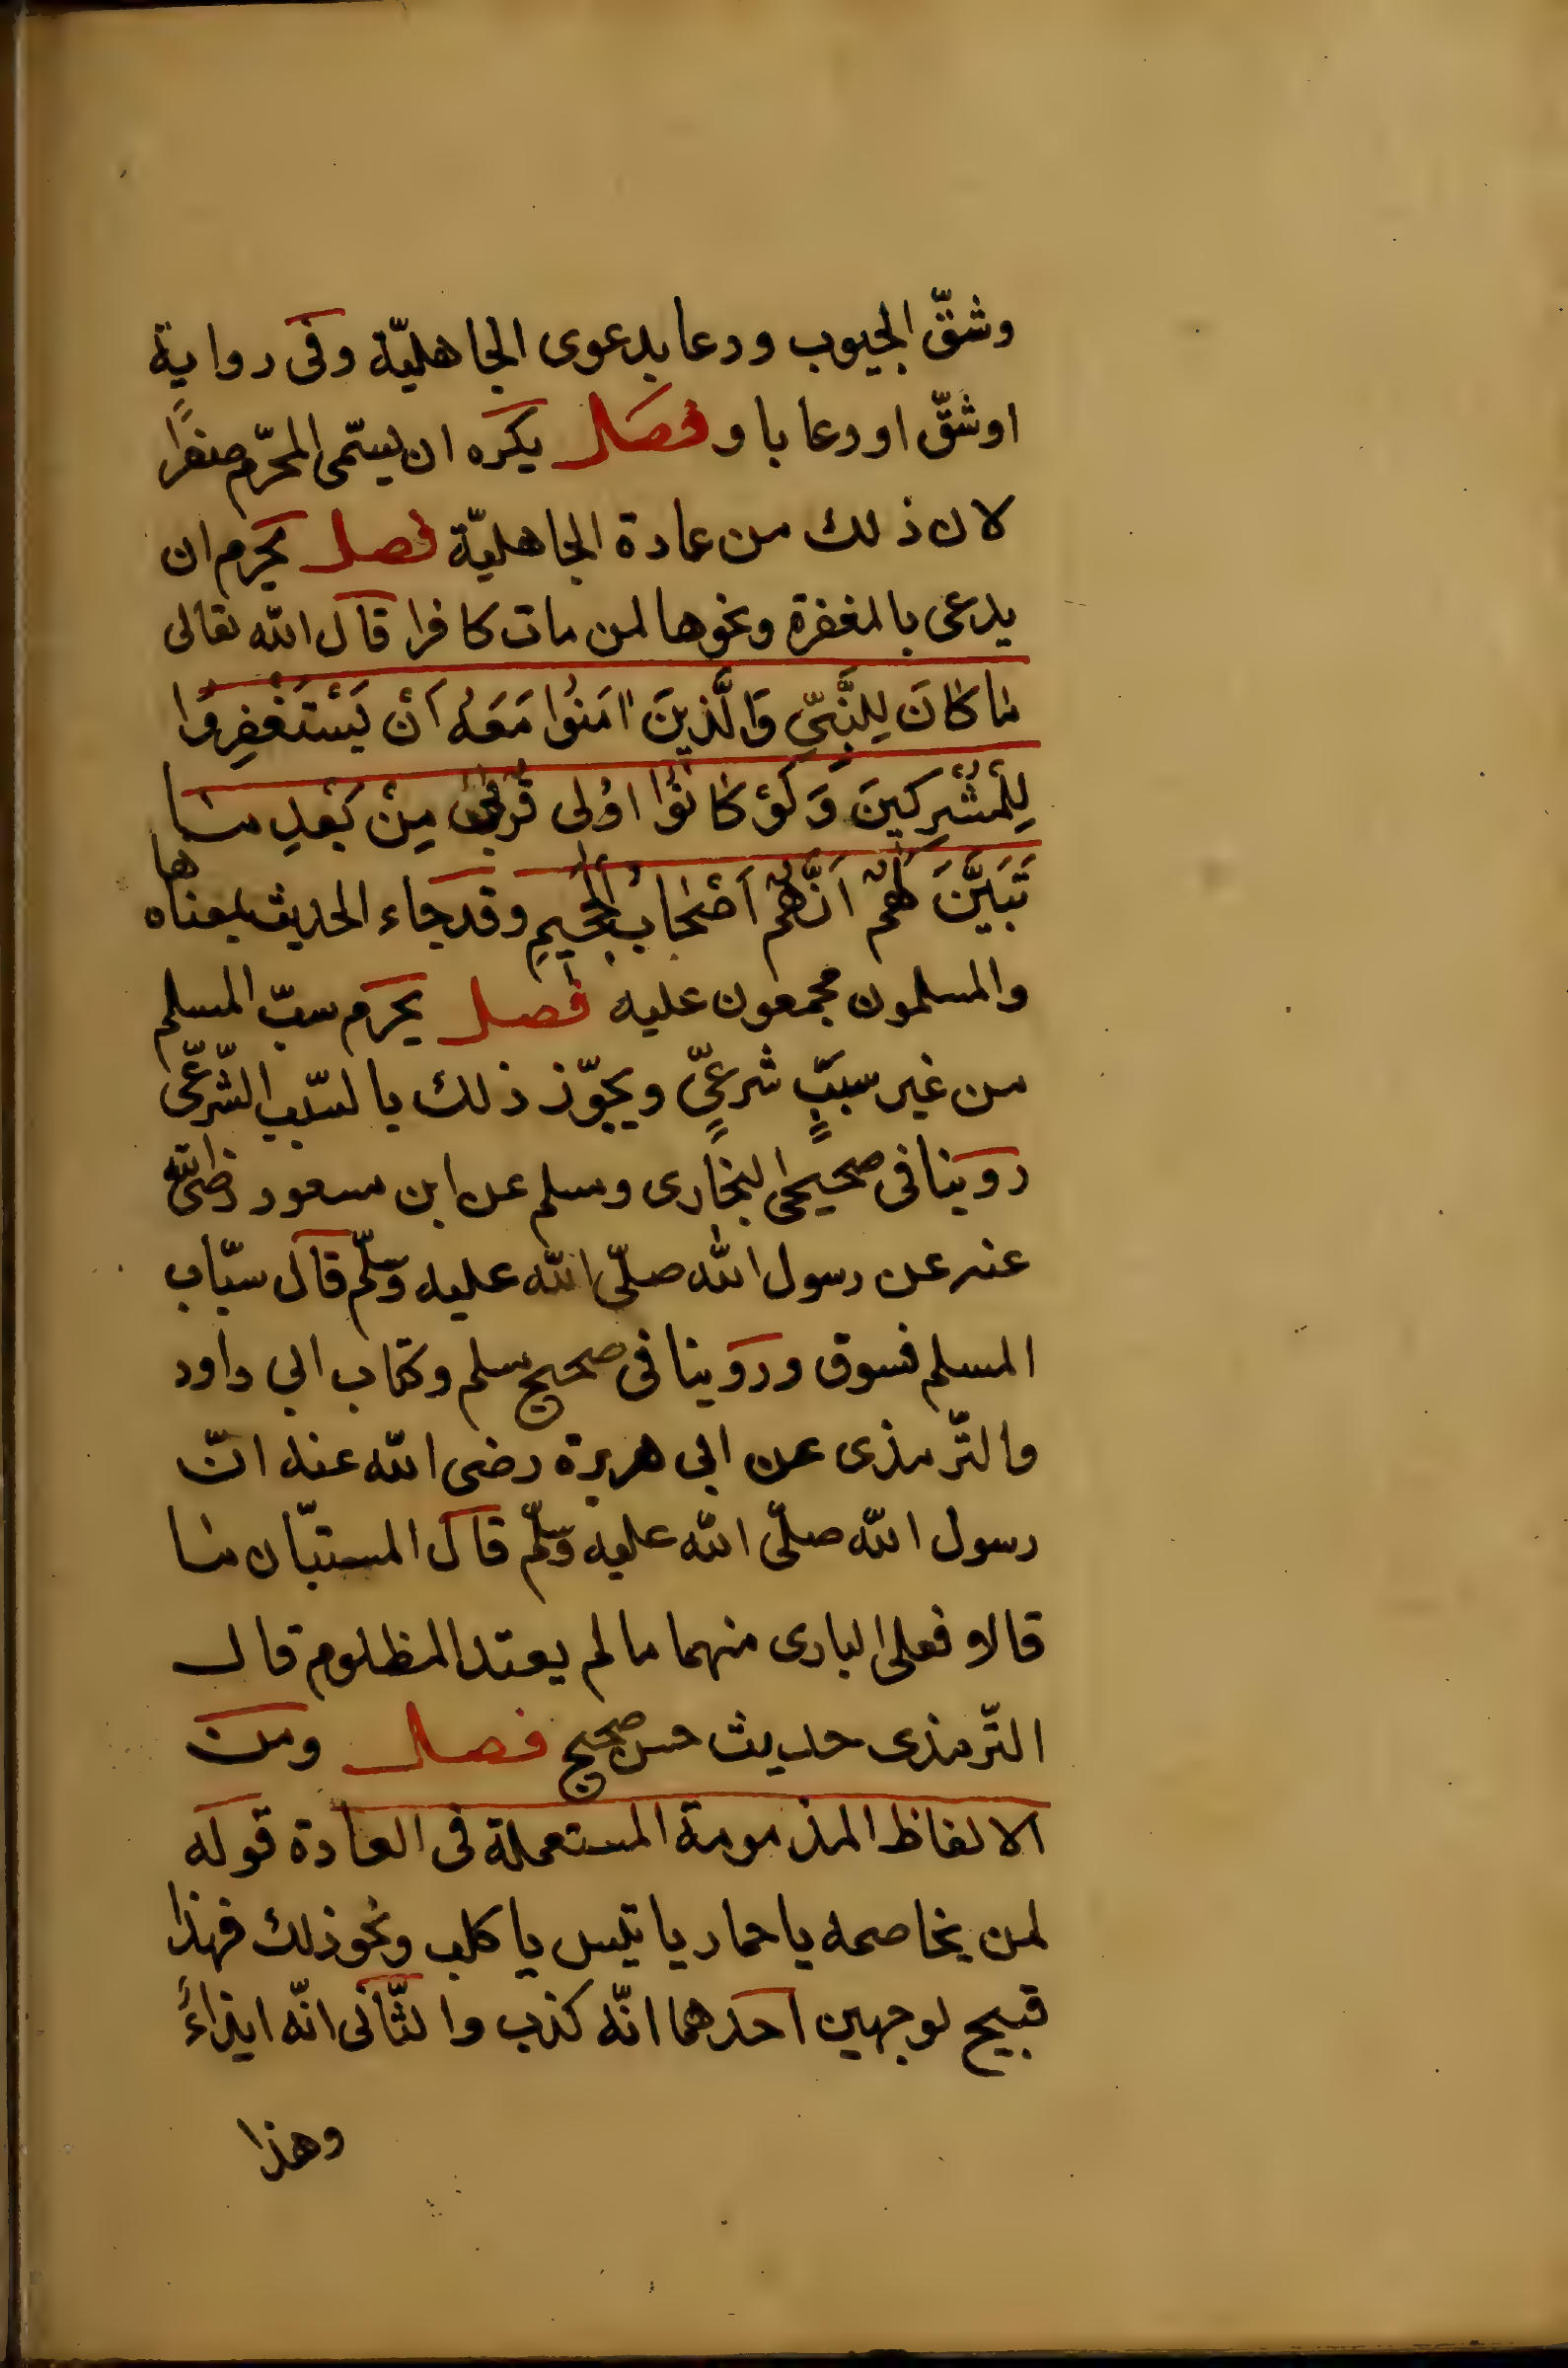 وشقّ الجيوب ودعا بدعوى الجاهليّة وفى رواية
اوشقّ او دعا باو فصَل يكره ان يسمّى المحرّم صفرًا
لان ذلك من عادة الجاهليّة فصل يحرم ان
يدعى بالمغفرة ونحوها لمن مات كافرا قال الله تعالى
مَا كَانَ لِلنَّبِيِّ وَالَّذِينَ اٰمَنُوا مَعَهُ اَنْ يَسْتَغْفِرُوا
لِلْمُشْرِكِينَ وَلَوْ كَانُوا اوُلى قُرْبىٰ مِنْ بَعْدِ مَا
تَبَيَّنَ لَهُمْ اَنَّهُمْ اَصْحَابُ الْجَحِيمِ وقد جاء الحديث بمعناه ها
والمسلمون مجمعون عليه فصل يحرم سبّ المسلم
من غير سببٍ شرعىٍّ ويجوّز ذلك بالسّبب الشّرعّى
روينا فى صحيحى البخارى ومسلم عن ابن مسعود رضى الله
عنه عن رسول الله صلّى الله عليه وسلّم قال سبّاب
المسلم فسوق وروينا فى صحيح مسلم وكتاب ابى داود
والتّرمذى عن ابى هريرة رضى الله عنه انّ
رسول الله صلّى الله عليه وسلّم قال المستبّان ما
قالاو فعلى البادى منهما مالم يعتد المظلوم قال
التّرمذى حديث حسن صحيح فصل ومن
الالفاظ المذمومة المستعملة فى العادة قوله
لمن يخاصمه ياحمار ياتيس ياكلب ونحو ذلك فهذا
قبيح لوجهين احدهما انّه كذب والثّانى انّه ايذاءٌ
وهذا